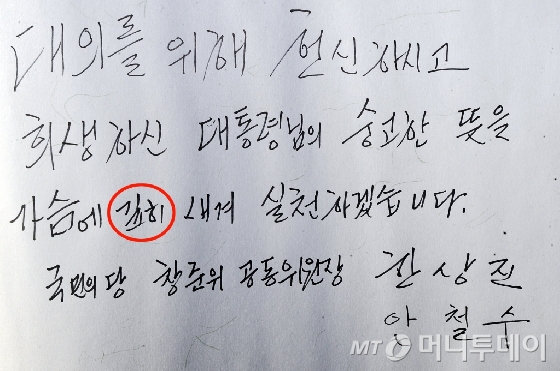 대의를 위해 헌신하시고
희생하신 대통령님의 숭고한 뜻을
가슴에 깊히 새겨 실천하겠습니다.
국민의당 창준위 공동위원장 한상진
안철수
MT 머니투데이